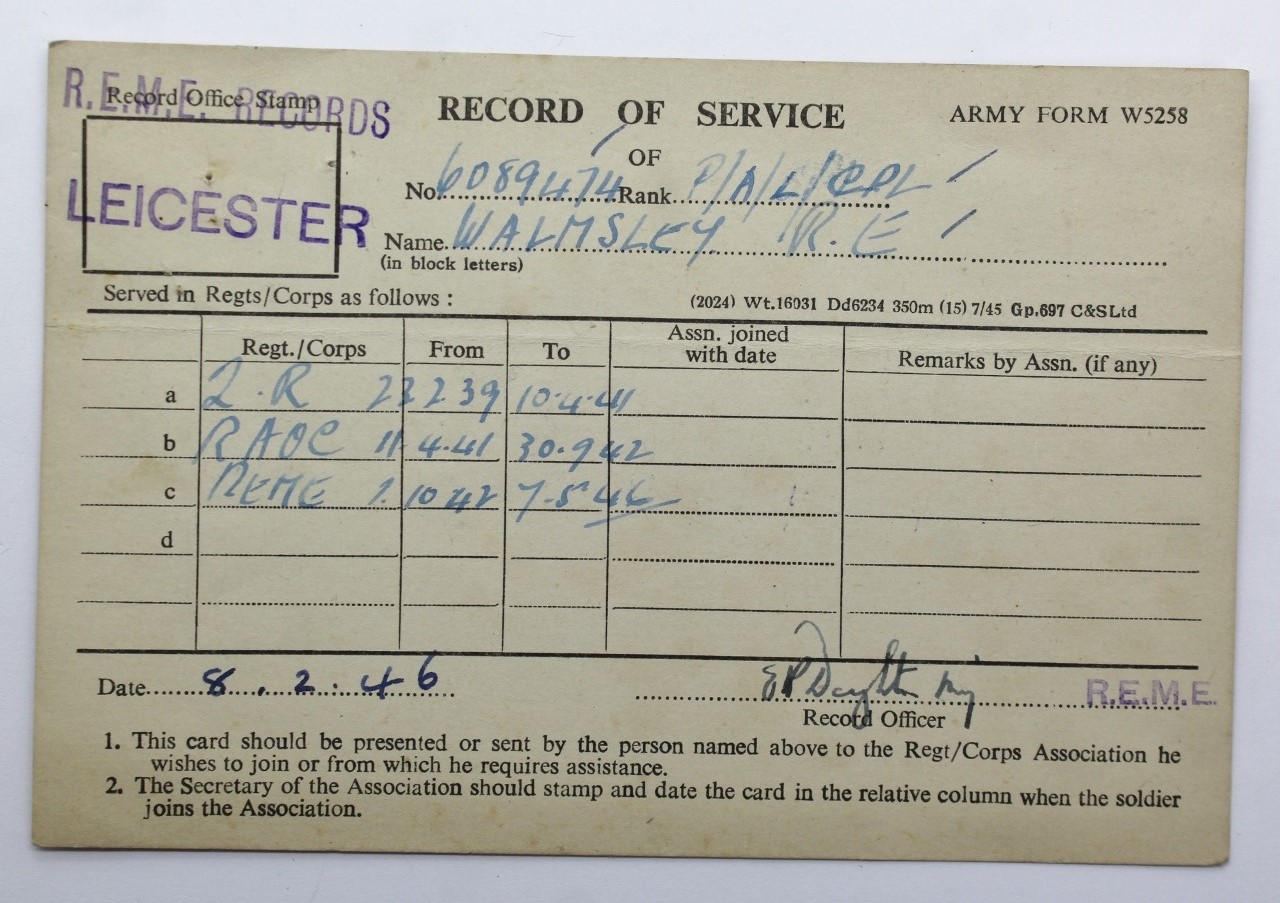 R.E.M.E. RECORDS
Record Office Stamp
LEICESTER
RECORD OF SERVICE
ARMY FORM W5258
OF
No. 6089474 Rank P/A/L/CPL
Name WALMSLEY R.E
(in block letters)
Served in Regts/Corps as follows :
(2024) Wt.16031 Dd6234 350m (15) 7/45 Gp.697 C&SLtd
Regt./Corps From To Assn. joined with date Remarks by Assn. (if any)
a Q.R 23 2 39 10.4.41
b RAOC 11.4.41 30.9 42
c REME 1.10 42 7.5 46
d
Date 8.2.46
R.E.M.E.
Record Officer
1. This card should be presented or sent by the person named above to the Regt/Corps Association he
wishes to join or from which he requires assistance.
2. The Secretary of the Association should stamp and date the card in the relative column when the soldier
joins the Association.